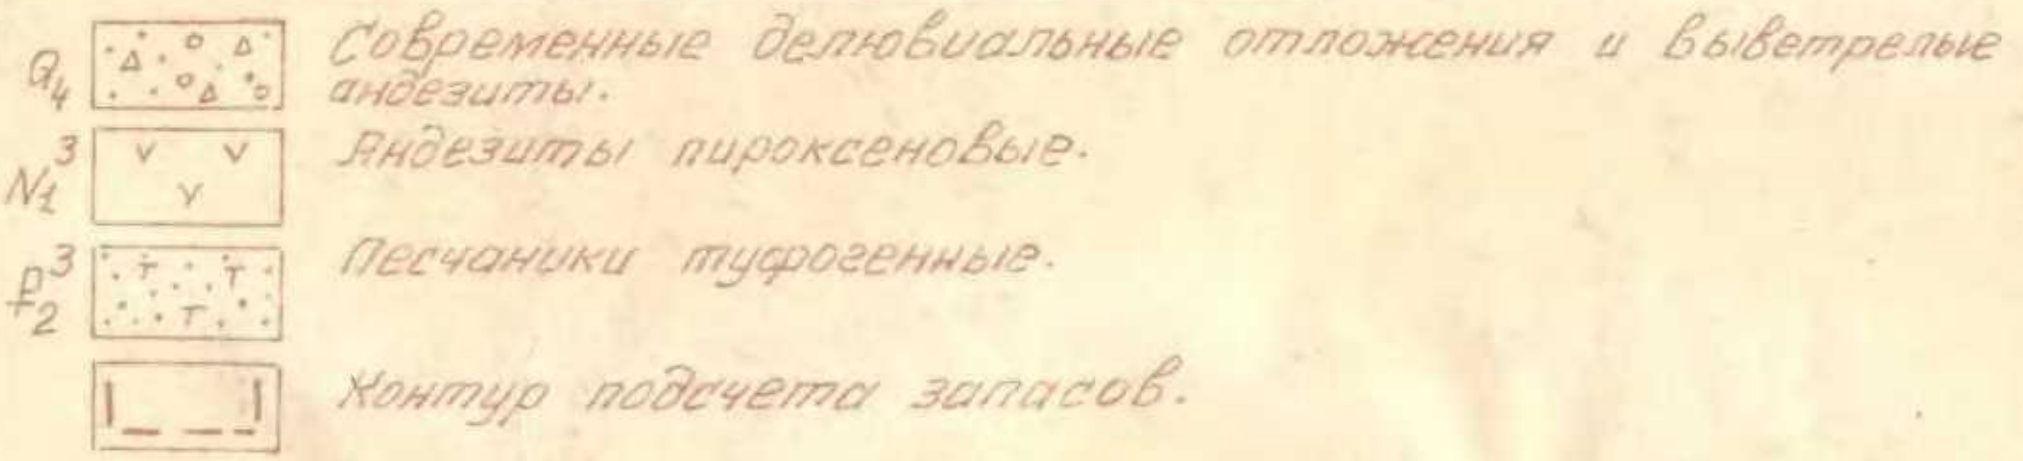 Q₄ Современные делювиальные отложения и выветрелые
андезиты.
N₁³ Андезиты пироксеновые.
P₂³ Песчаники туфрогенные.
Контур подсчета запасов.